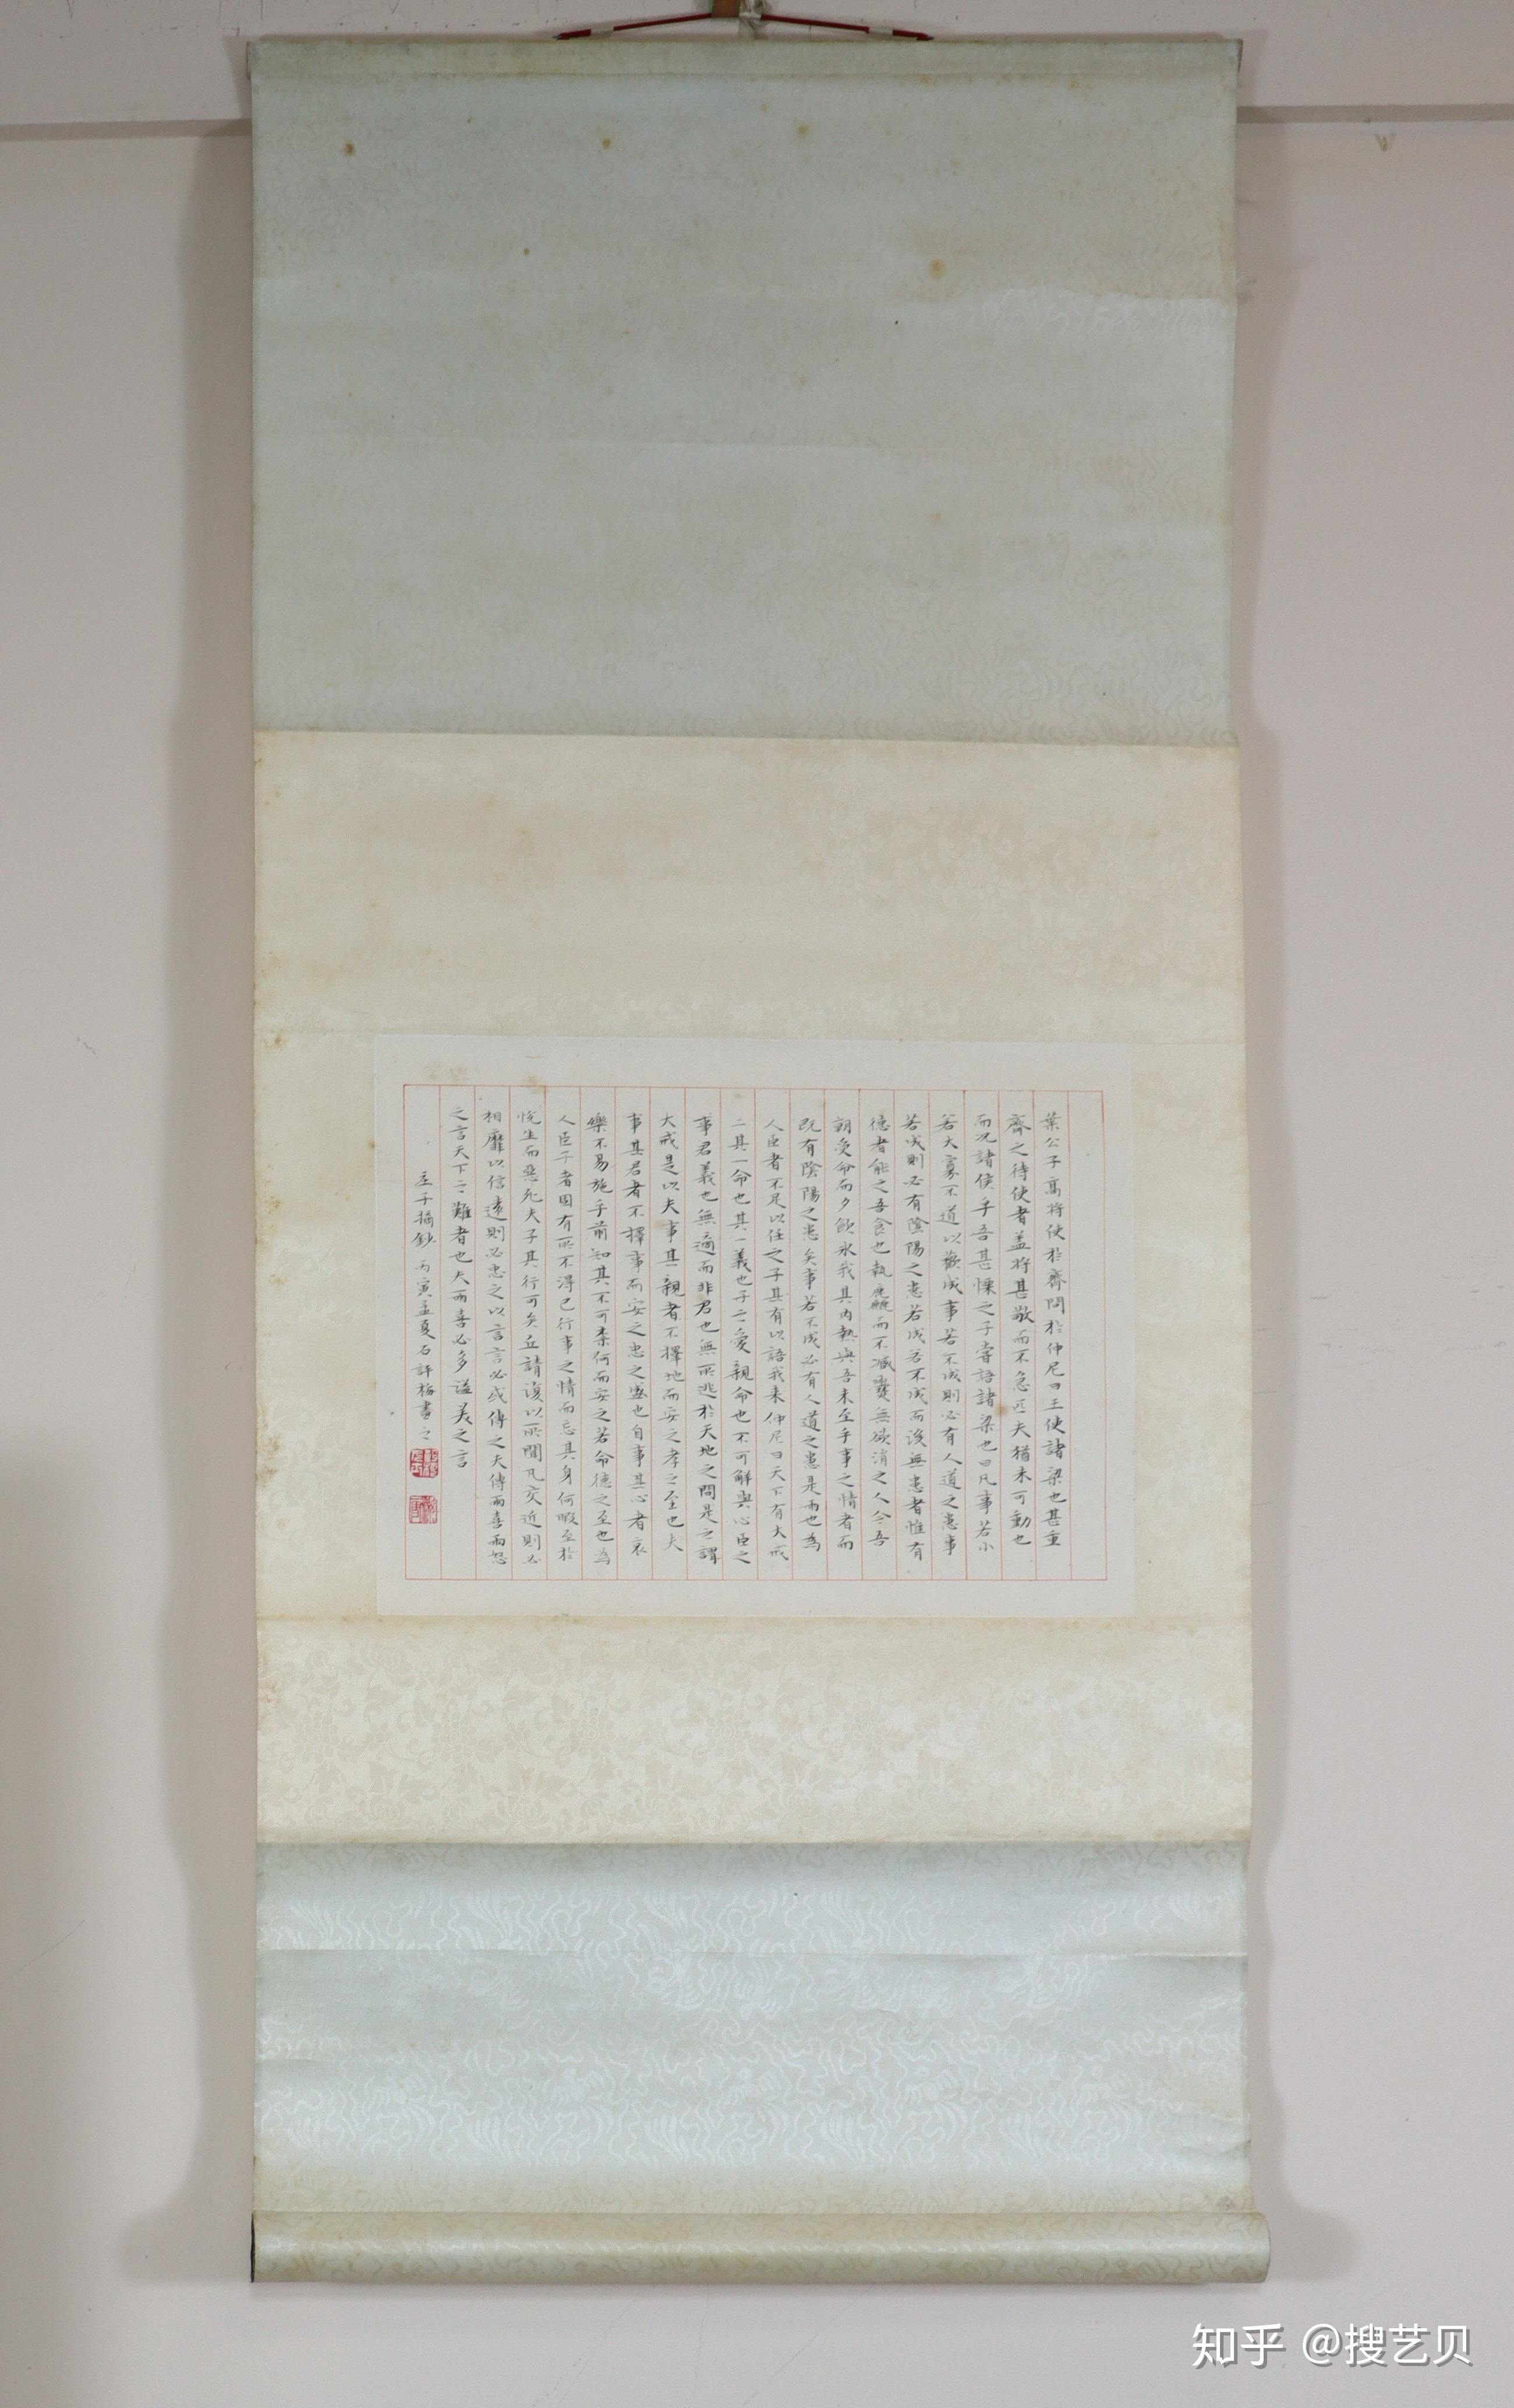 葉公子高將使於齊問於仲尼曰王使諸梁也甚重
齊之待使者蓋將甚敬而不急匹夫猶未可動也
而況諸侯乎吾甚慄之子嘗語諸梁也曰凡事若小
若大寡不道以懽成事若不成則必有人道之患事
若成則必有陰陽之患若成若不成而後無患者惟有
德者能之吾食也執麤而不臧爨無欲清之人今吾
朝受命而夕飲氷我其内熱與吾未至乎事之情者而
既有陰陽之患矣事若不成必有人道之患是兩也為
人臣者不足以任之子其有以語我来仲尼曰天下有大戒
二其一命也其一義也子之愛親命也不可解與心臣之
事君義也無適而非君也無所逃於天地之間是之謂
大戒是以夫事其親者不擇地而安之孝之至也夫
事其君者不擇事而安之忠之盛也自事其心者哀
樂不易施乎前知其不可柰何而安之若命德之至也為
人臣子者固有所不得已行事之情而忘其身何暇至於
悅生而惡死夫子其行可矣丘請復以所聞凡交近則必
相靡以信遠則必忠之以言言必或傳之夫傳兩喜兩怒
之言天下之難者也夫兩喜必多溢美之言
莊子摘鈔 丙寅孟夏石評梅書之
知乎 @搜艺贝